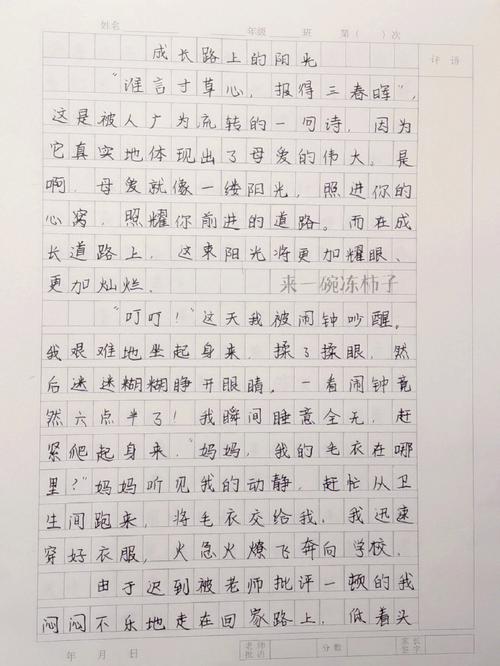 姓名 年级 班 第( )次
评语
成长路上的阳光
“谁言寸草心，报得三春晖”，
这是被人广为流转的一句诗，因为
它真实地体现出了母爱的伟大。是
啊，母爱就像一缕阳光，照进你的
心窝，照耀你前进的道路。而在成
长道路上，这束阳光将更加耀眼、
更加灿烂。
来一碗冻柿子
“叮叮！”这天我被闹钟吵醒。
我艰难地坐起身来，揉了揉眼，然
后迷迷糊糊睁开眼睛。一看闹钟竟
然六点半了！我瞬间睡意全无，赶
紧爬起身来，“妈妈，我的毛衣在哪
里？”妈妈听见我的动静，赶忙从卫
生间跑来，将毛衣交给我，我迅速
穿好衣服，火急火燎飞奔向学校。
由于迟到被老师批评一顿的我
闷闷不乐地走在回家路上，低着头
年 月 日 老师批语 分数 家长签字